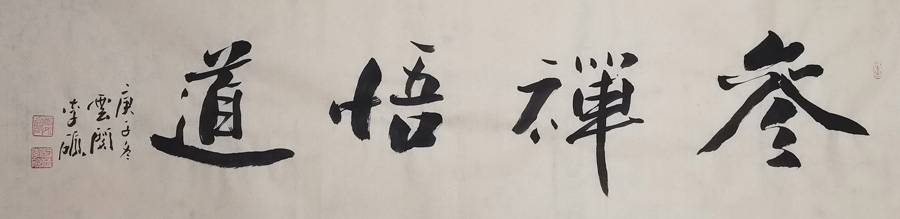 參禪悟道
庚子冬
雲閒
李